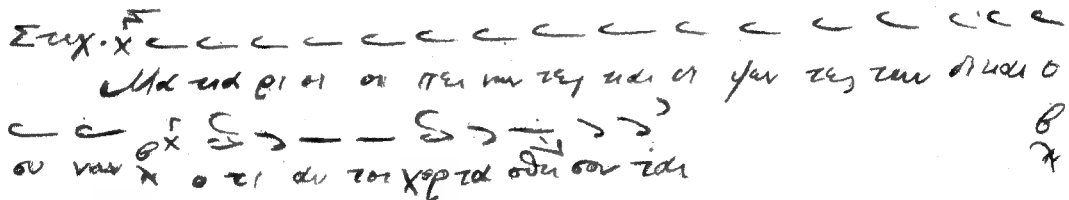 Στιχ.
Μα κα ρι οι οι πει νων τες και δι ψων τες την δι και ο
συ νην ο τι αυ τοι χορ τα σθη σον ται